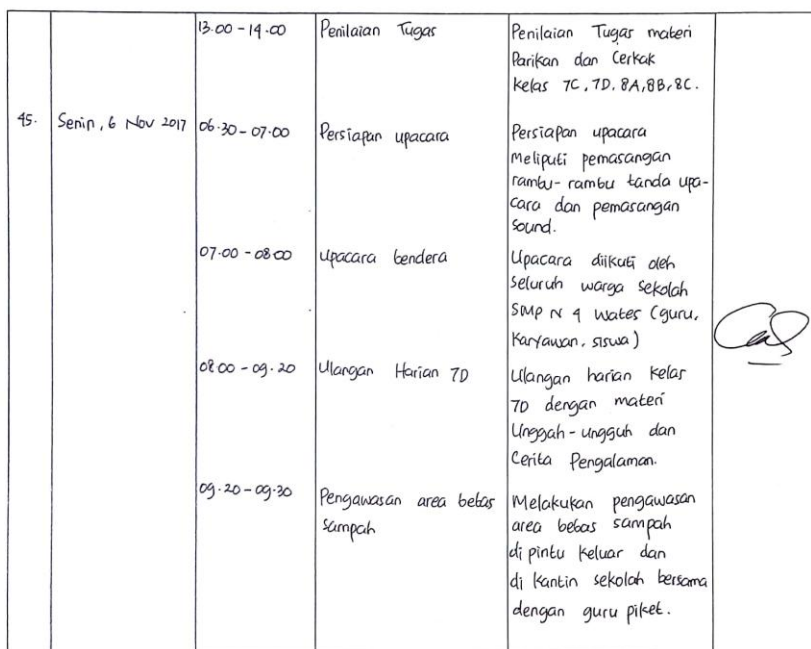 13.00 - 14.00 Penilaian Tugas Penilaian Tugas materi
Parikan dan Cerkak
Kelas 7C, 7D, 8A, 8B, 8C.
45. Senin, 6 Nov 2017 06.30 - 07.00 Persiapan upacara Persiapan upacara
meliputi pemasangan
rambu-rambu tanda upa-
cara dan pemasangan
sound.
07.00 - 08.00 Upacara bendera Upacara diikuti oleh
seluruh warga sekolah
SMP N 4 Wates (guru,
Karyawan, siswa)
08.00 - 09.20 Ulangan Harian 7D Ulangan harian kelas
7D dengan materi
Unggah-ungguh dan
Cerita Pengalaman.
09.20 - 09.30 Pengawasan area bebas Melakukan pengawasan
sampah area bebas sampah
di pintu keluar dan
di kantin sekolah bersama
dengan guru piket.